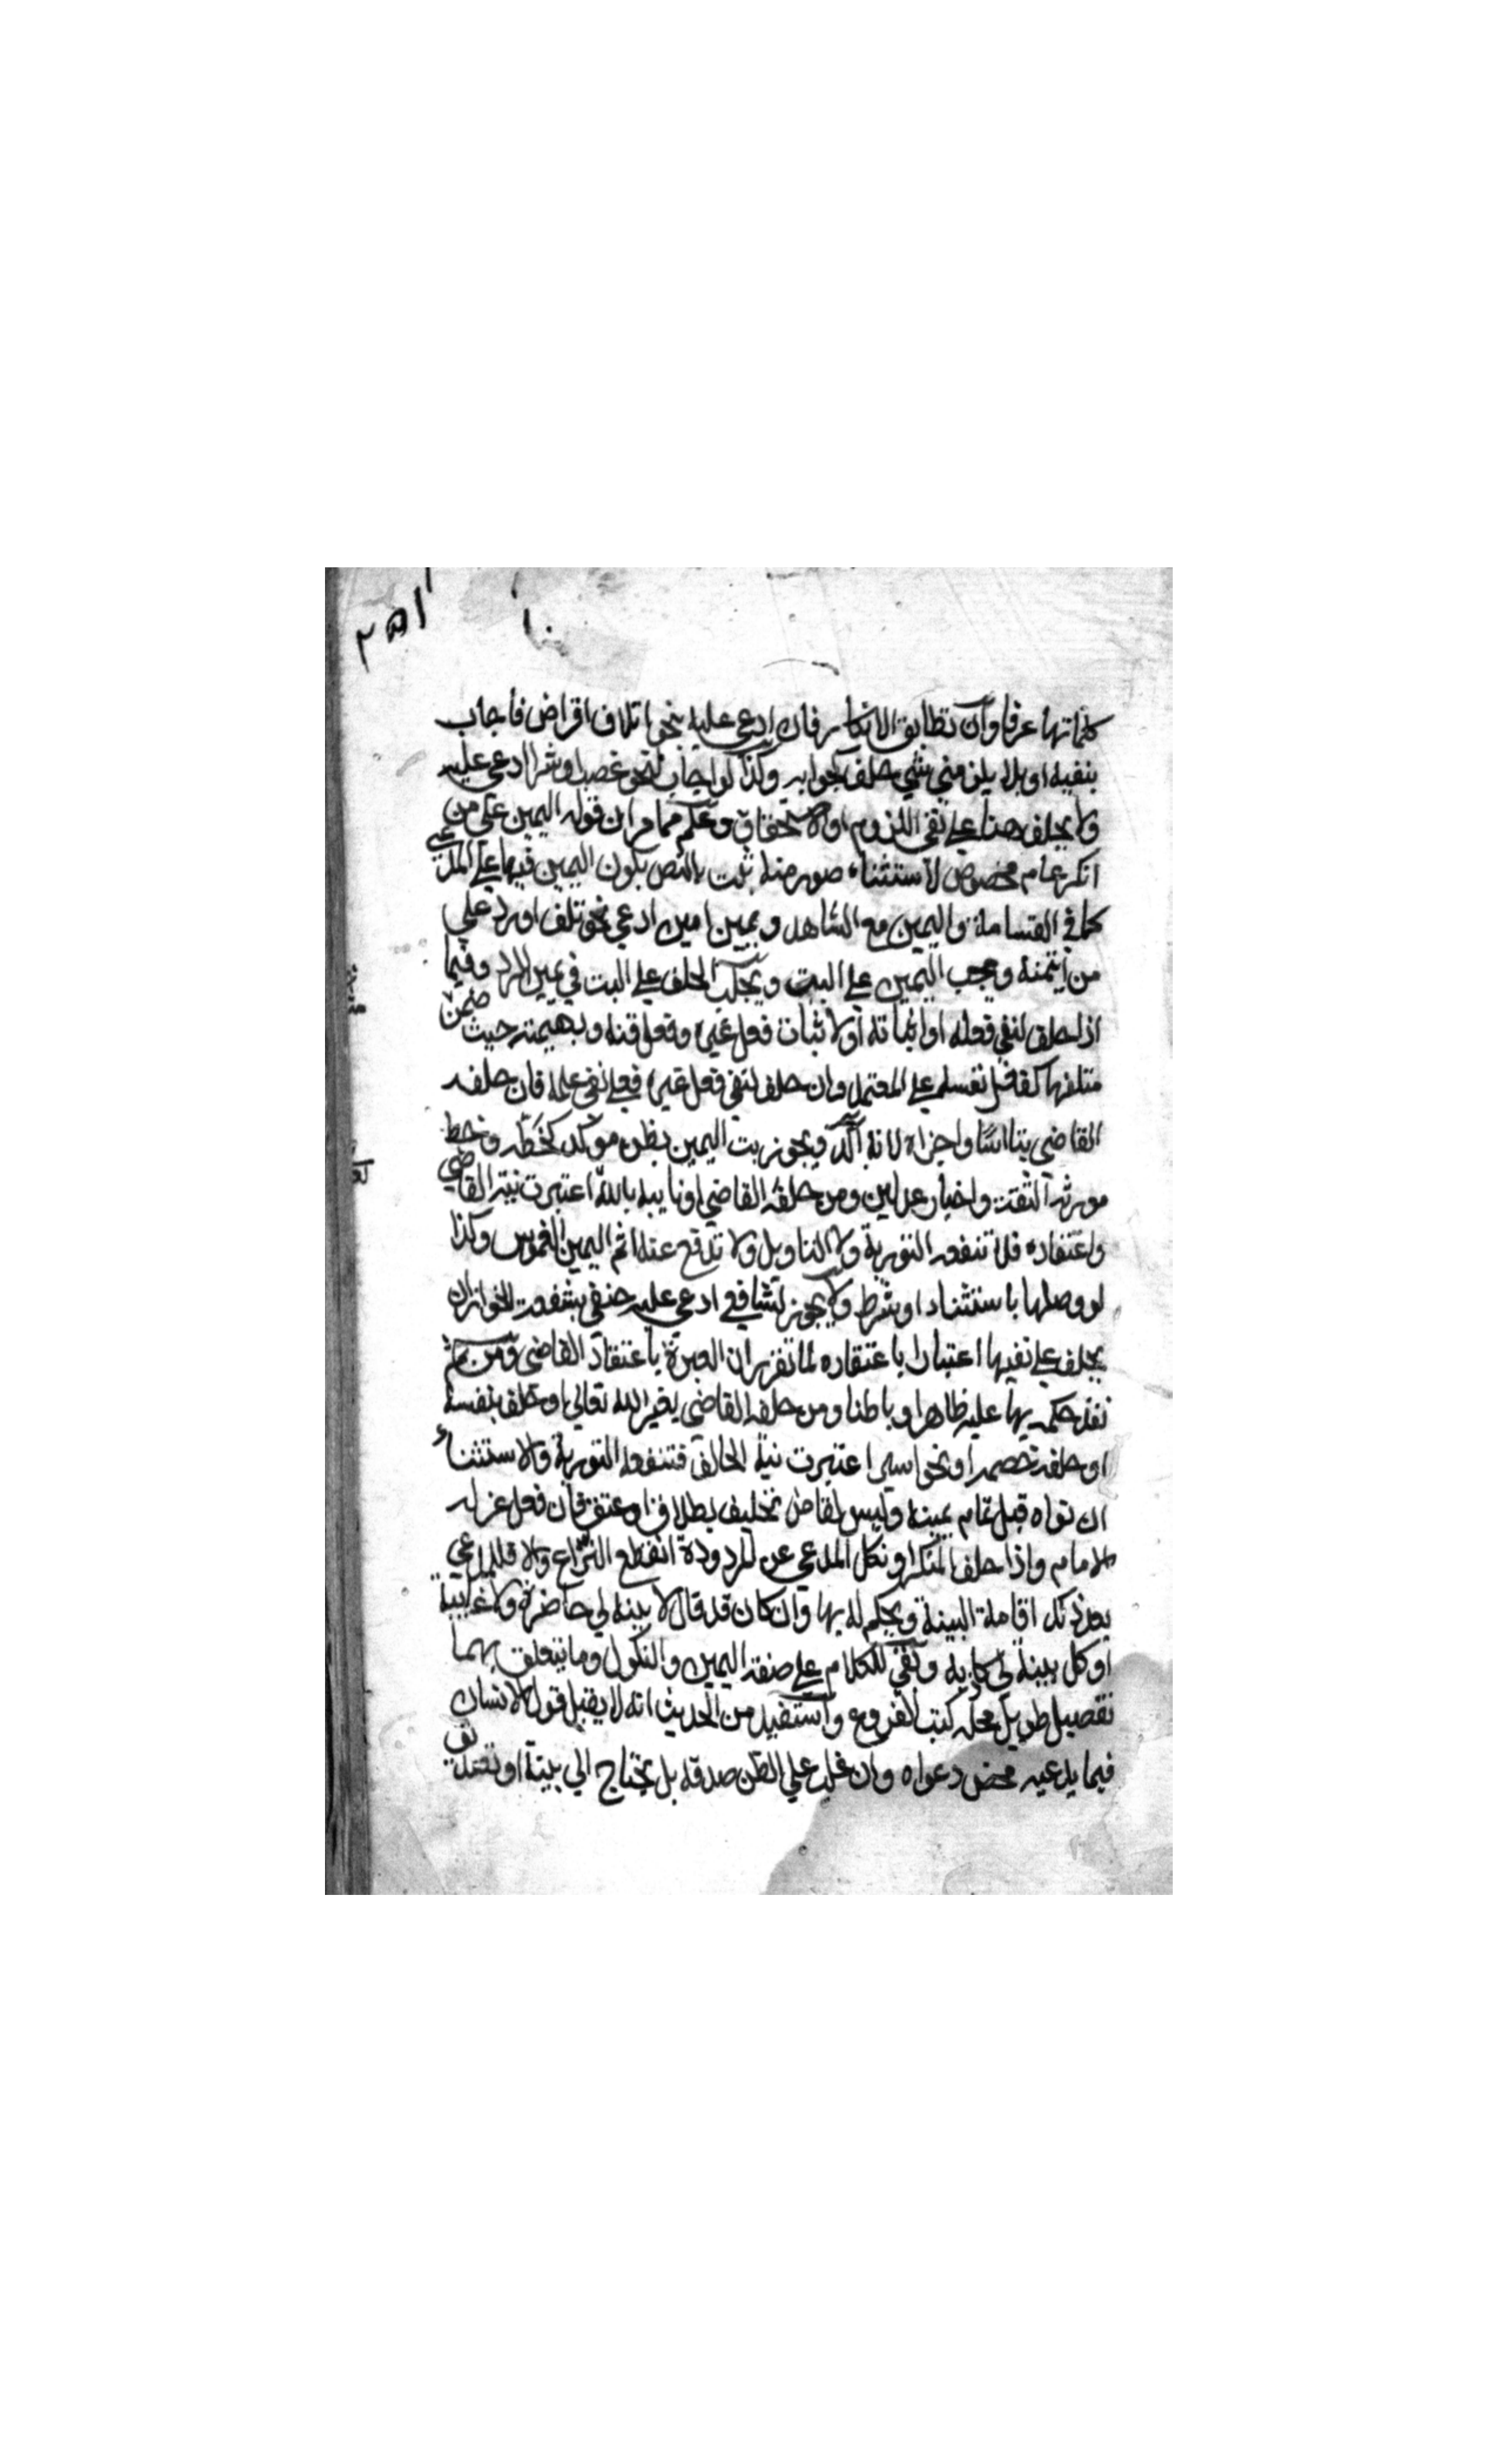 ٢٥١
كلماتها عرفا وان تطابق الانكار فان ادعي عليه نحو اتلاف اقراض فاجاب
بنفيه او بلا يلزمني شي حلف كجوابه وكذا لو اجاب لنحو غصب او شرا ادعي عليه
ولا يحلف هنا علي نفي اللزوم او الاستحقاق وعلم مما مر ان قوله اليمين علي من
انكر عام مخصوص لاستثناء صور منه ثبت بالنص بكون اليمين فيها علي المدعي
كما في القسامة واليمين مع الشاهد ويمين امين ادعي نحو تلف او رد علي
من ايتمنه وتجب اليمين علي البت ويجب الحلف علي البت في يمين الرد وفيما
اذا حلف لنفي فعله او اثباته او لاثبات فعل غيره وفعل قنه وبهيمته حيث ضمن
متلفها كفعل نفسه علي المعتمد وان حلف لنفي فعل غيره فعلي نفي علمه فان حلفه
القاضي بتا اسا واجزاه لانه آكد ويجوز بت اليمين بظن موكد كخطه وخط
مورثه الثقة واخبار عدلين ومن حلفه القاضي او نايبه بالله اعتبرت نية القاضي
واعتقاده فلا تنفعه التورية ولا التاويل ولا تدفع عنه اثم اليمين الغموس وكذا
لو وصلها باستثناء او شرط ولا يجوز لشافعي ادعي عليه حنفي بشفعة الجوار ان
يحلف علي نفيها اعتبارا باعتقاده لما تقرر ان العبرة باعتقاد القاضي ومن ثم
نفذ حكمه بها عليه ظاهرا وباطنا ومن حلفه القاضي بغير الله تعالي او حلف بنفسه
او حلفه خصمه او نحو اسير اعتبرت نية الحالف فتنفعه التورية والاستثناء
ان نواه قبل تمام يمينه وليس لقاض تحليف بطلاق او عتق فان فعل عزله
الامام واذا حلف المنكر او نكل المدعي عن المردودة انقطع النزاع والا فللمدعي
بعد ذلك اقامة البينة ويحكم له بها وان كان قد قال لا بينة لي حاضرة ولا غايبة
او كل بينة لي كاذبة وبقي للكلام علي صفة اليمين والنكول وما يتعلق بهما
تفصيل طويل محله كتب الفروع واستفيد من الحديث انه لا يقبل قول الانسان
فيما يدعيه محض دعواه وان غلب علي الظن صدقه بل يحتاج الي بينة او تصديق